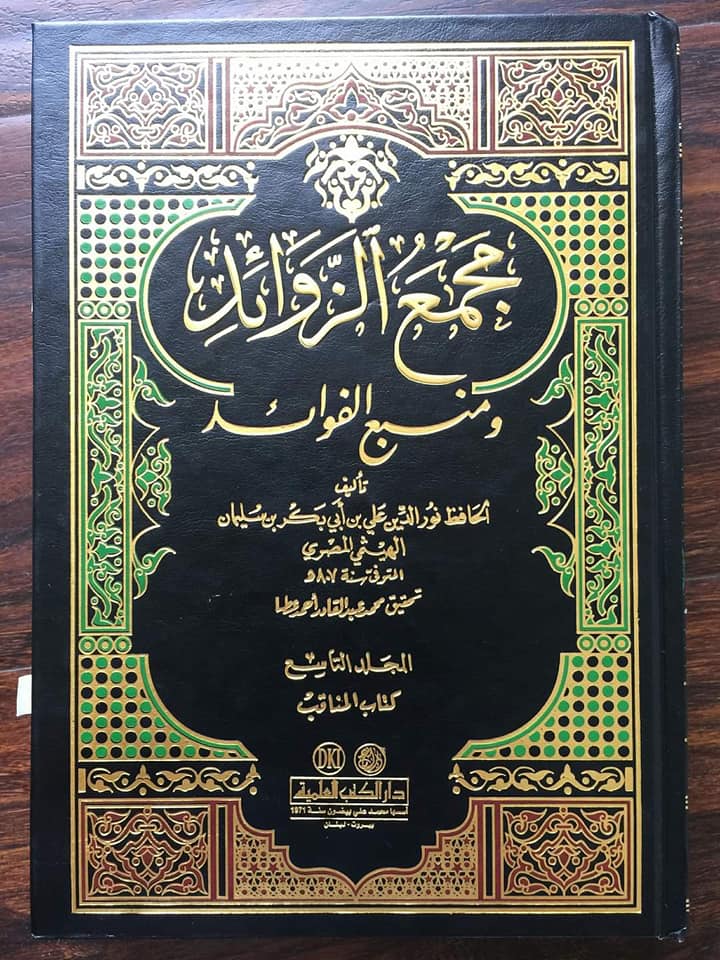 مَجْمَعُ ٱلزَّوَائِدِ
ومنبع الفوائد
تأليف
الحافظ نور الدين علي بن أبي بكر بن سليمان
الهيثمي المصري
المتوفى سنة ٨٠٧ھ
تحقيق محمد عبد القادر أحمد عطا
المجلد التاسع
كتاب المناقب
DKI
دار الكتب العلمية
أسسها محمد علي بيضون سنة 1971
بيروت - لبنان